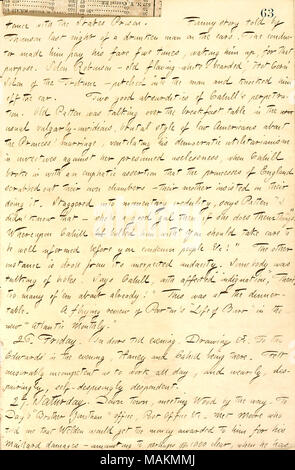 63
tence with the States Prison. Funny story told by
Thomson last night of a drunken man in the cars. The conduc-
tor made him pay his fare five times, waking him up, for that
purpose. Solon Robinson — old flowing-white-bearded "Hot Corn"
Solon of the Tribune — pitched into the man and thrashed him
off the car. Two good absurdities of Cahill's perpetra-
tion. Old Patten was talking over the breakfast table in the
usual vulgarly-invidious, brutal style of low Americans about
the Princess' marriage, ventilating his democratic utilitarianism
in invectives against her presumed uselessness, when Cahill
broke in with an emphatic assertion that the princesses of England
scrubbed out their own chambers — their mother insisted in their
doing it. Staggered into momentary credulity, says Patten "I
didn't know that — she's a good 'un then if she does them things!"
Whereupon Cahill told him that "he should take care to
be well informed before you condemn people &c!" The other
instance is droll from its unexpected audacity. Somebody was
talking of holes. Says Cahill, with affected indignation, "There's
too many of 'em about already!" This was at the dinner-
table. A flaying review of Parton's "Life of Burr" in the
new "Atlantic Monthly."
26. Friday. In doors till evening. Drawing &c. To the
Edwards' in the evening, Haney and Cahill being there. Felt
miserably incompetent us to work all day, and wearly, des-
pairingly, self-despisingly despondent.
27. Saturday. Down town, meeting Wood by the way. To
Day's "Brother Jonathan" office, Post Office &c. Met Moore who
told me that Welden would get the money awarded to him, for his
Mallard damages — amounting to perhaps $1000 clear, when he has
alamy
Image ID: MAKMMJ
www.alamy.com